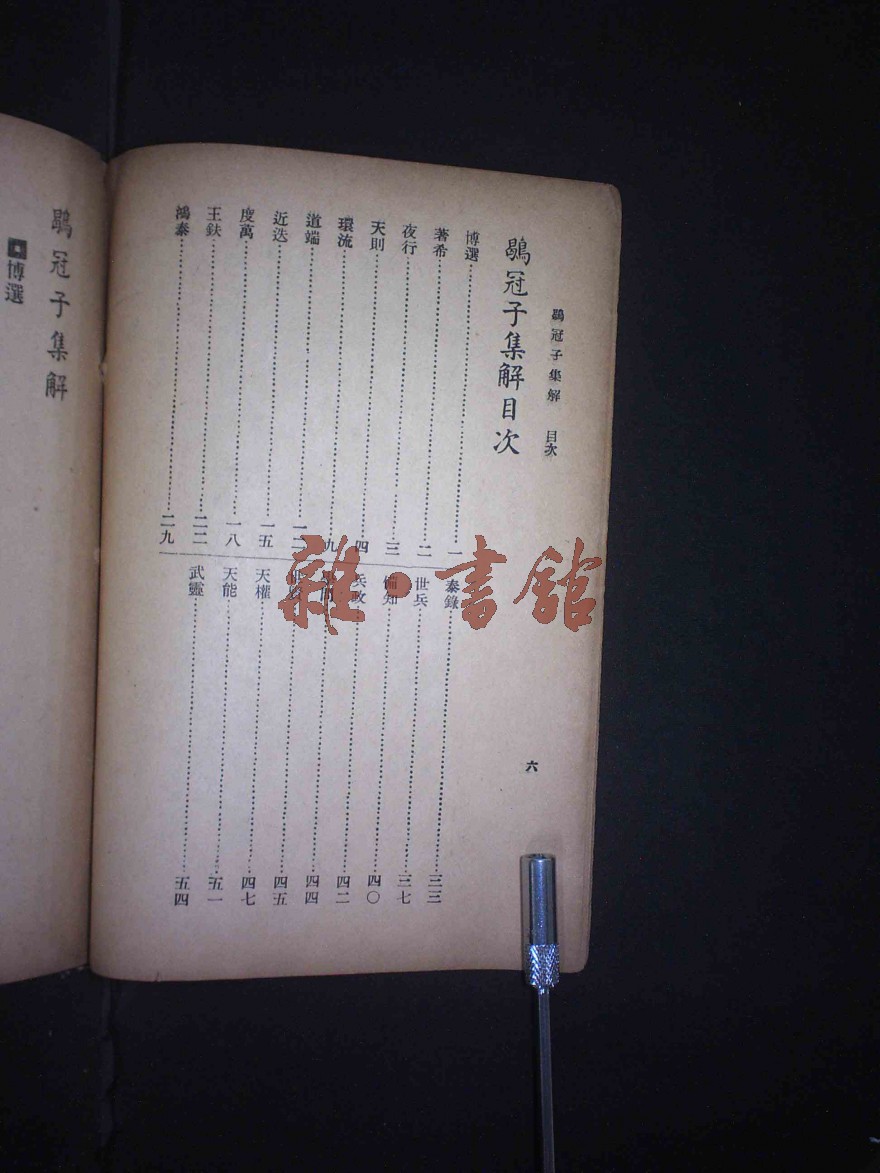 鶡冠子集解 目次
六
鶡冠子集解目次
博選……一
著希……二
夜行……三
天則……四
環流……九
道端……一二
近迭……一五
度萬……一八
王鈇……二二
鴻泰……二九
泰錄……三三
世兵……三七
備知……四〇
兵政……四二
……四四
……四五
天權……四七
天能……五一
武靈……五四
鶡冠子集解
博選
雜·書館